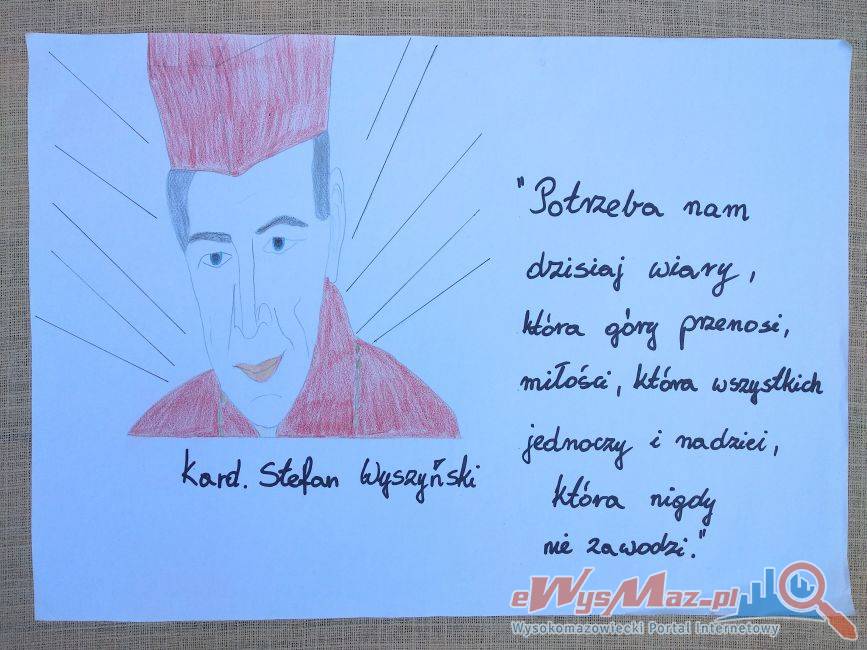 Kard. Stefan Wyszyński
"Potrzeba nam
dzisiaj wiary,
która góry przenosi,
miłości, która wszystkich
jednoczy i nadziei,
która nigdy
nie zawodzi."
eWysMaz.pl
Wysokomazowiecki Portal Internetowy